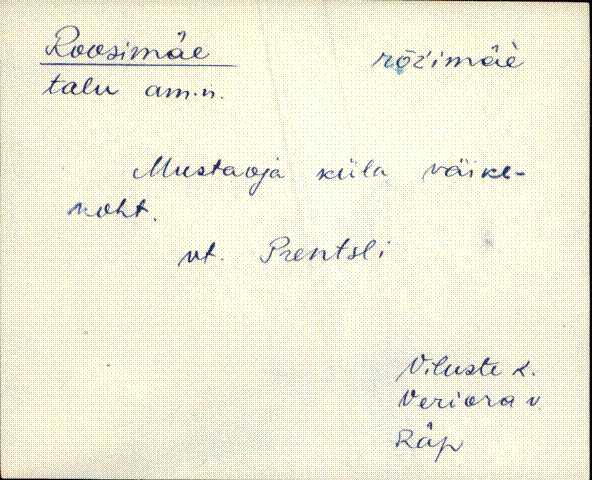 Roosimäe rõźimäè
talu am.n.
Mustaoja küla väike-
koht.
vt. Prentsli
Viluste k.
Veriora v.
Räp